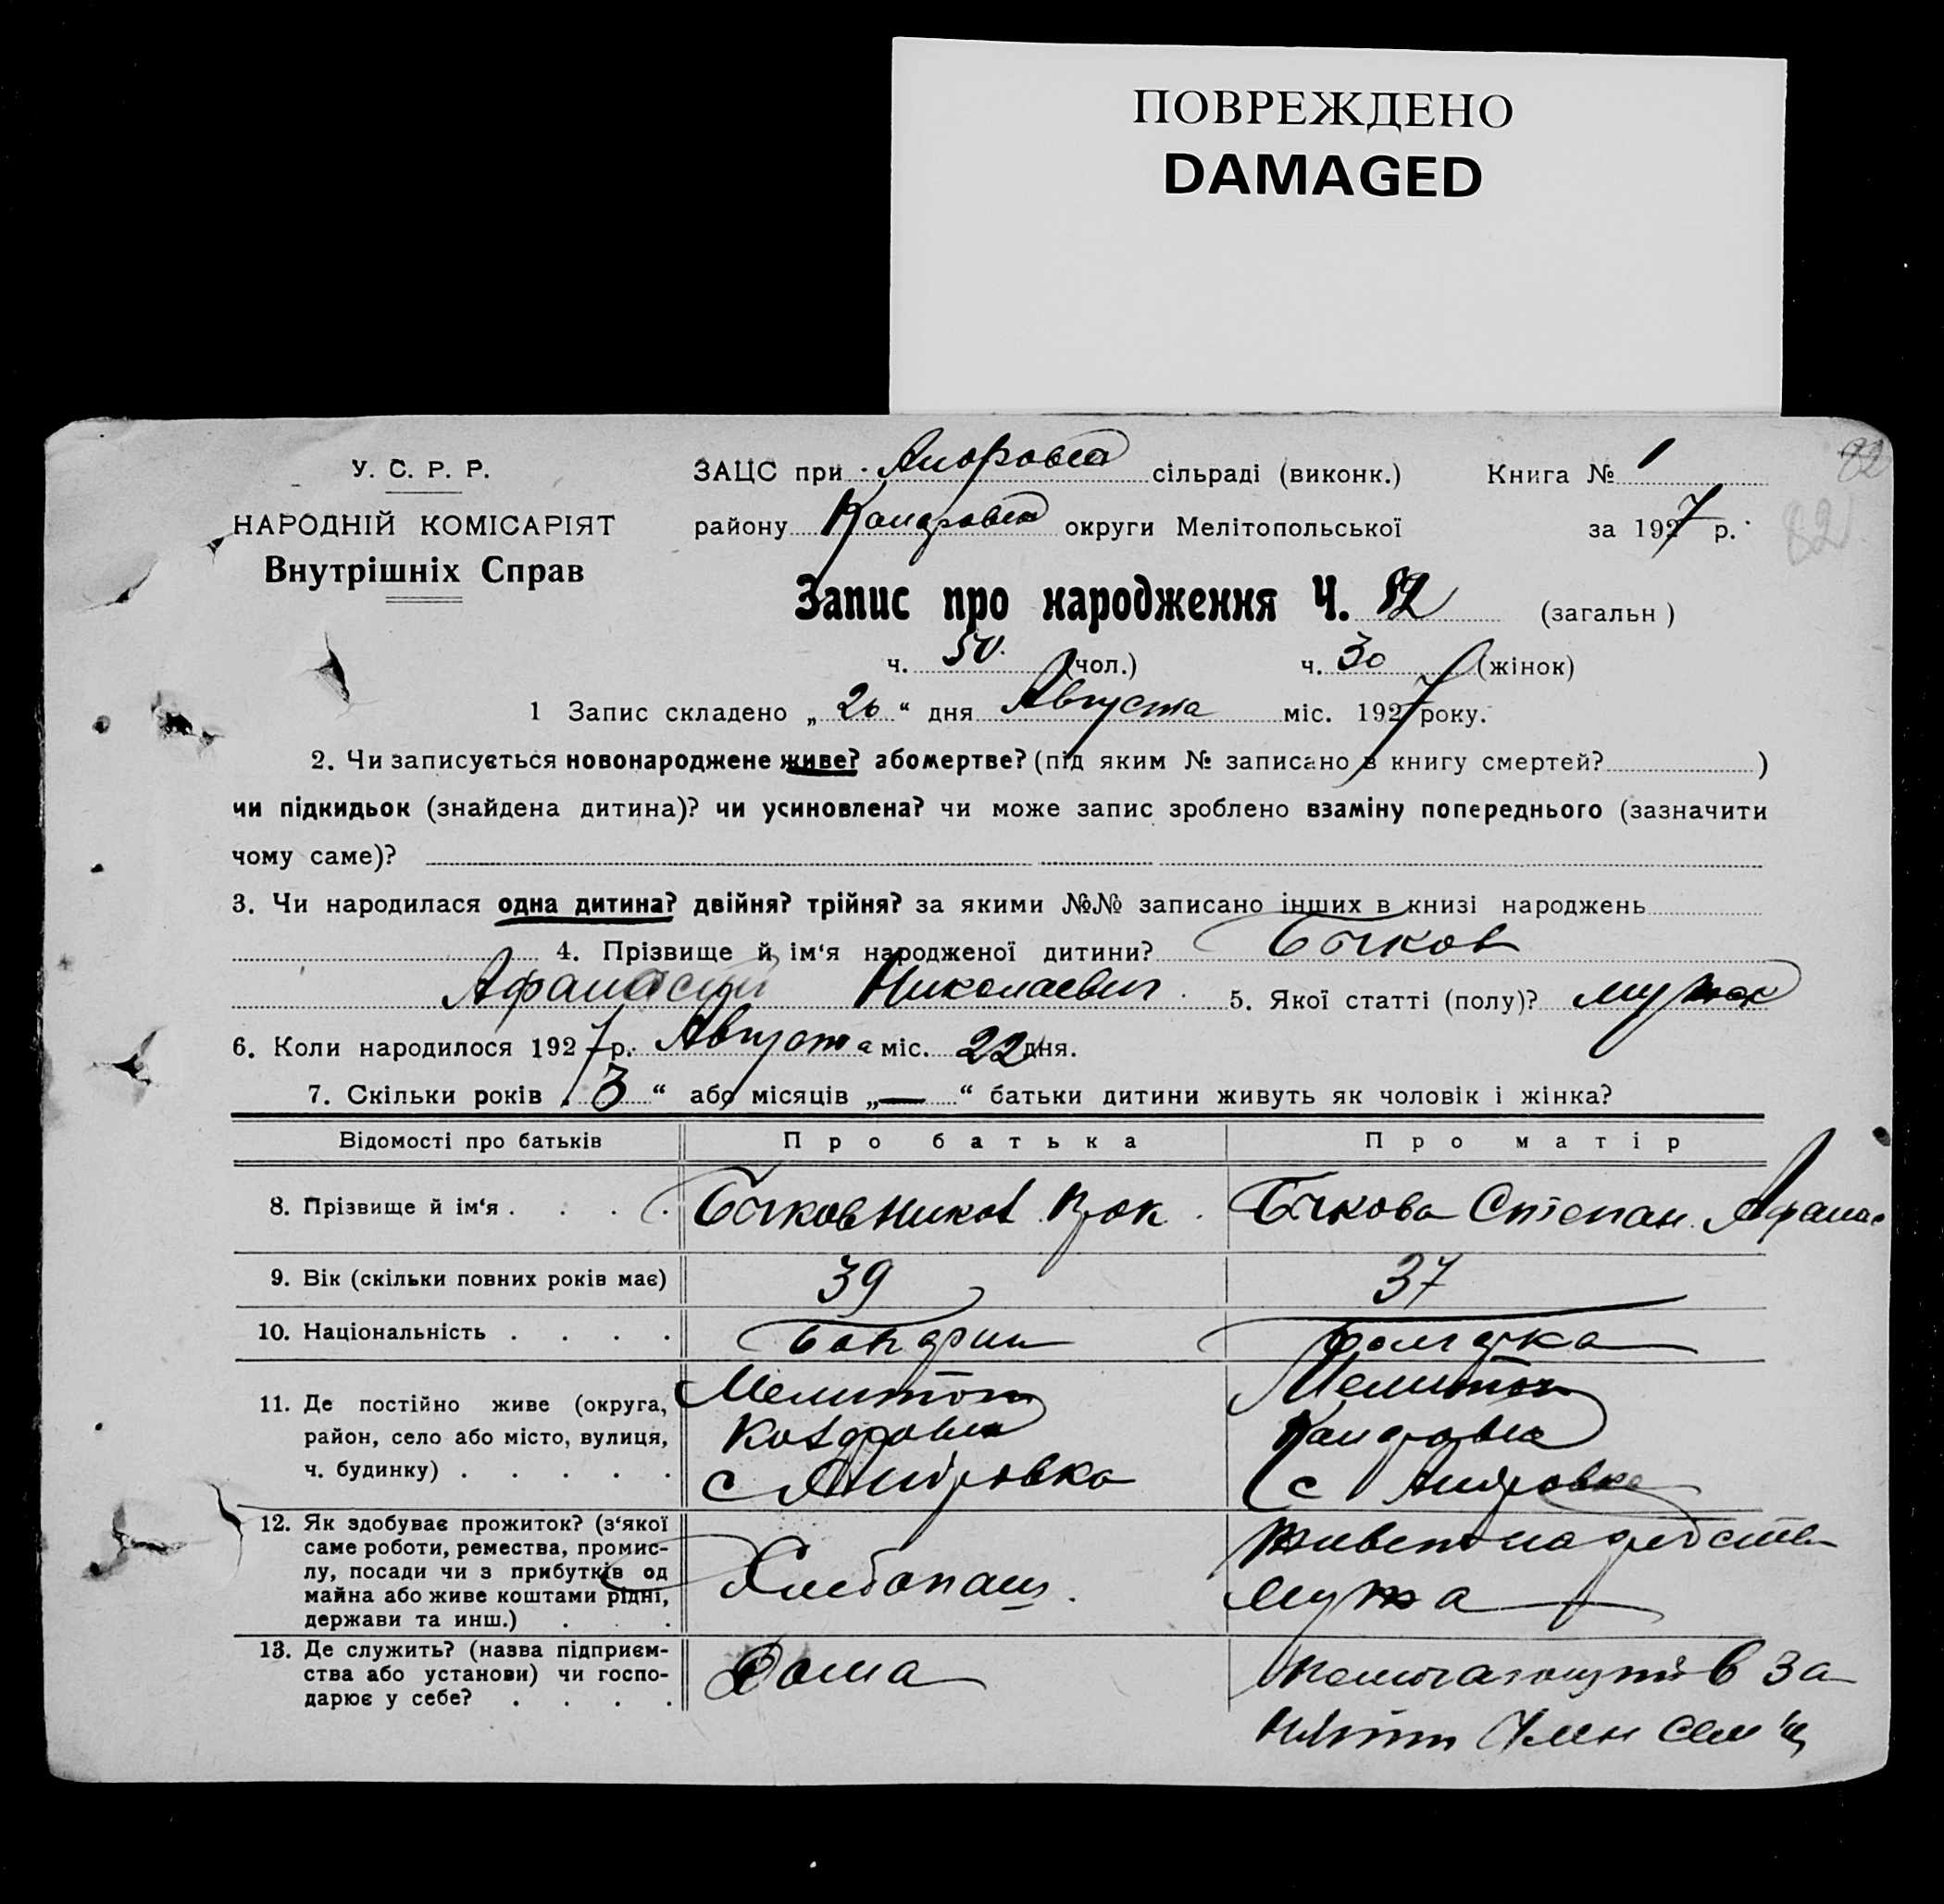 ПОВРЕЖДЕНО
DAMAGED
82
У. С. Р. Р.
ЗАЦС при сільраді (виконк.) Книга № 1
82
НАРОДНІЙ КОМІСАРІЯТ
району округи Мелітопольської за 1927 р.
Внутрішніх Справ
Запис про народження Ч. 82 (загальн )
ч. 50. (чол.) ч. 30 (жінок)
1 Запис складено „ 26 “ дня Августа міс. 1927 року.
2. Чи записується новонароджене живе? абомертве? (під яким № записано в книгу смертей? )
чи підкидьок (знайдена дитина)? чи усиновлена? чи може запис зроблено взаміну попереднього (зазначити
чому саме)?
3. Чи народилася одна дитина? двійня? трійня? за якими №№ записано інших в книзі народжень
4. Прізвище й ім‘я народженої дитини? Бычков
Афанасий Николаевич 5. Якої статті (полу)? мужск
6. Коли народилося 1927 р. Августа міс. 22 дня.
7. Скільки років „ 3 “ або місяців „—“ батьки дитини живуть як чоловік і жінка?
Відомості про батьків Про батька Про матір
8. Прізвище й ім‘я . . . . Бычков Никол Прок. Бычкова Степан. Афанас
9. Вік (скільки повних років має) 39 37
10. Національність . . . . Болгарин Болгарка
11. Де постійно живе (округа, Мелитоп Мелитоп
район, село або місто, вулиця,
ч. будинку) . . . . . с с
12. Як здобуває прожиток? (з‘якої
саме роботи, ремества, промис-
лу, посади чи з прибутків од
майна або живе коштами рідні,
держави та инш.) . . . Хлебопаш. живет на средства мужа
13. Де служить? (назва підприєм-
ства або установи) чи госпо-
дарює у себе? . . . . Дома помогающий в за
нятии член сем'и